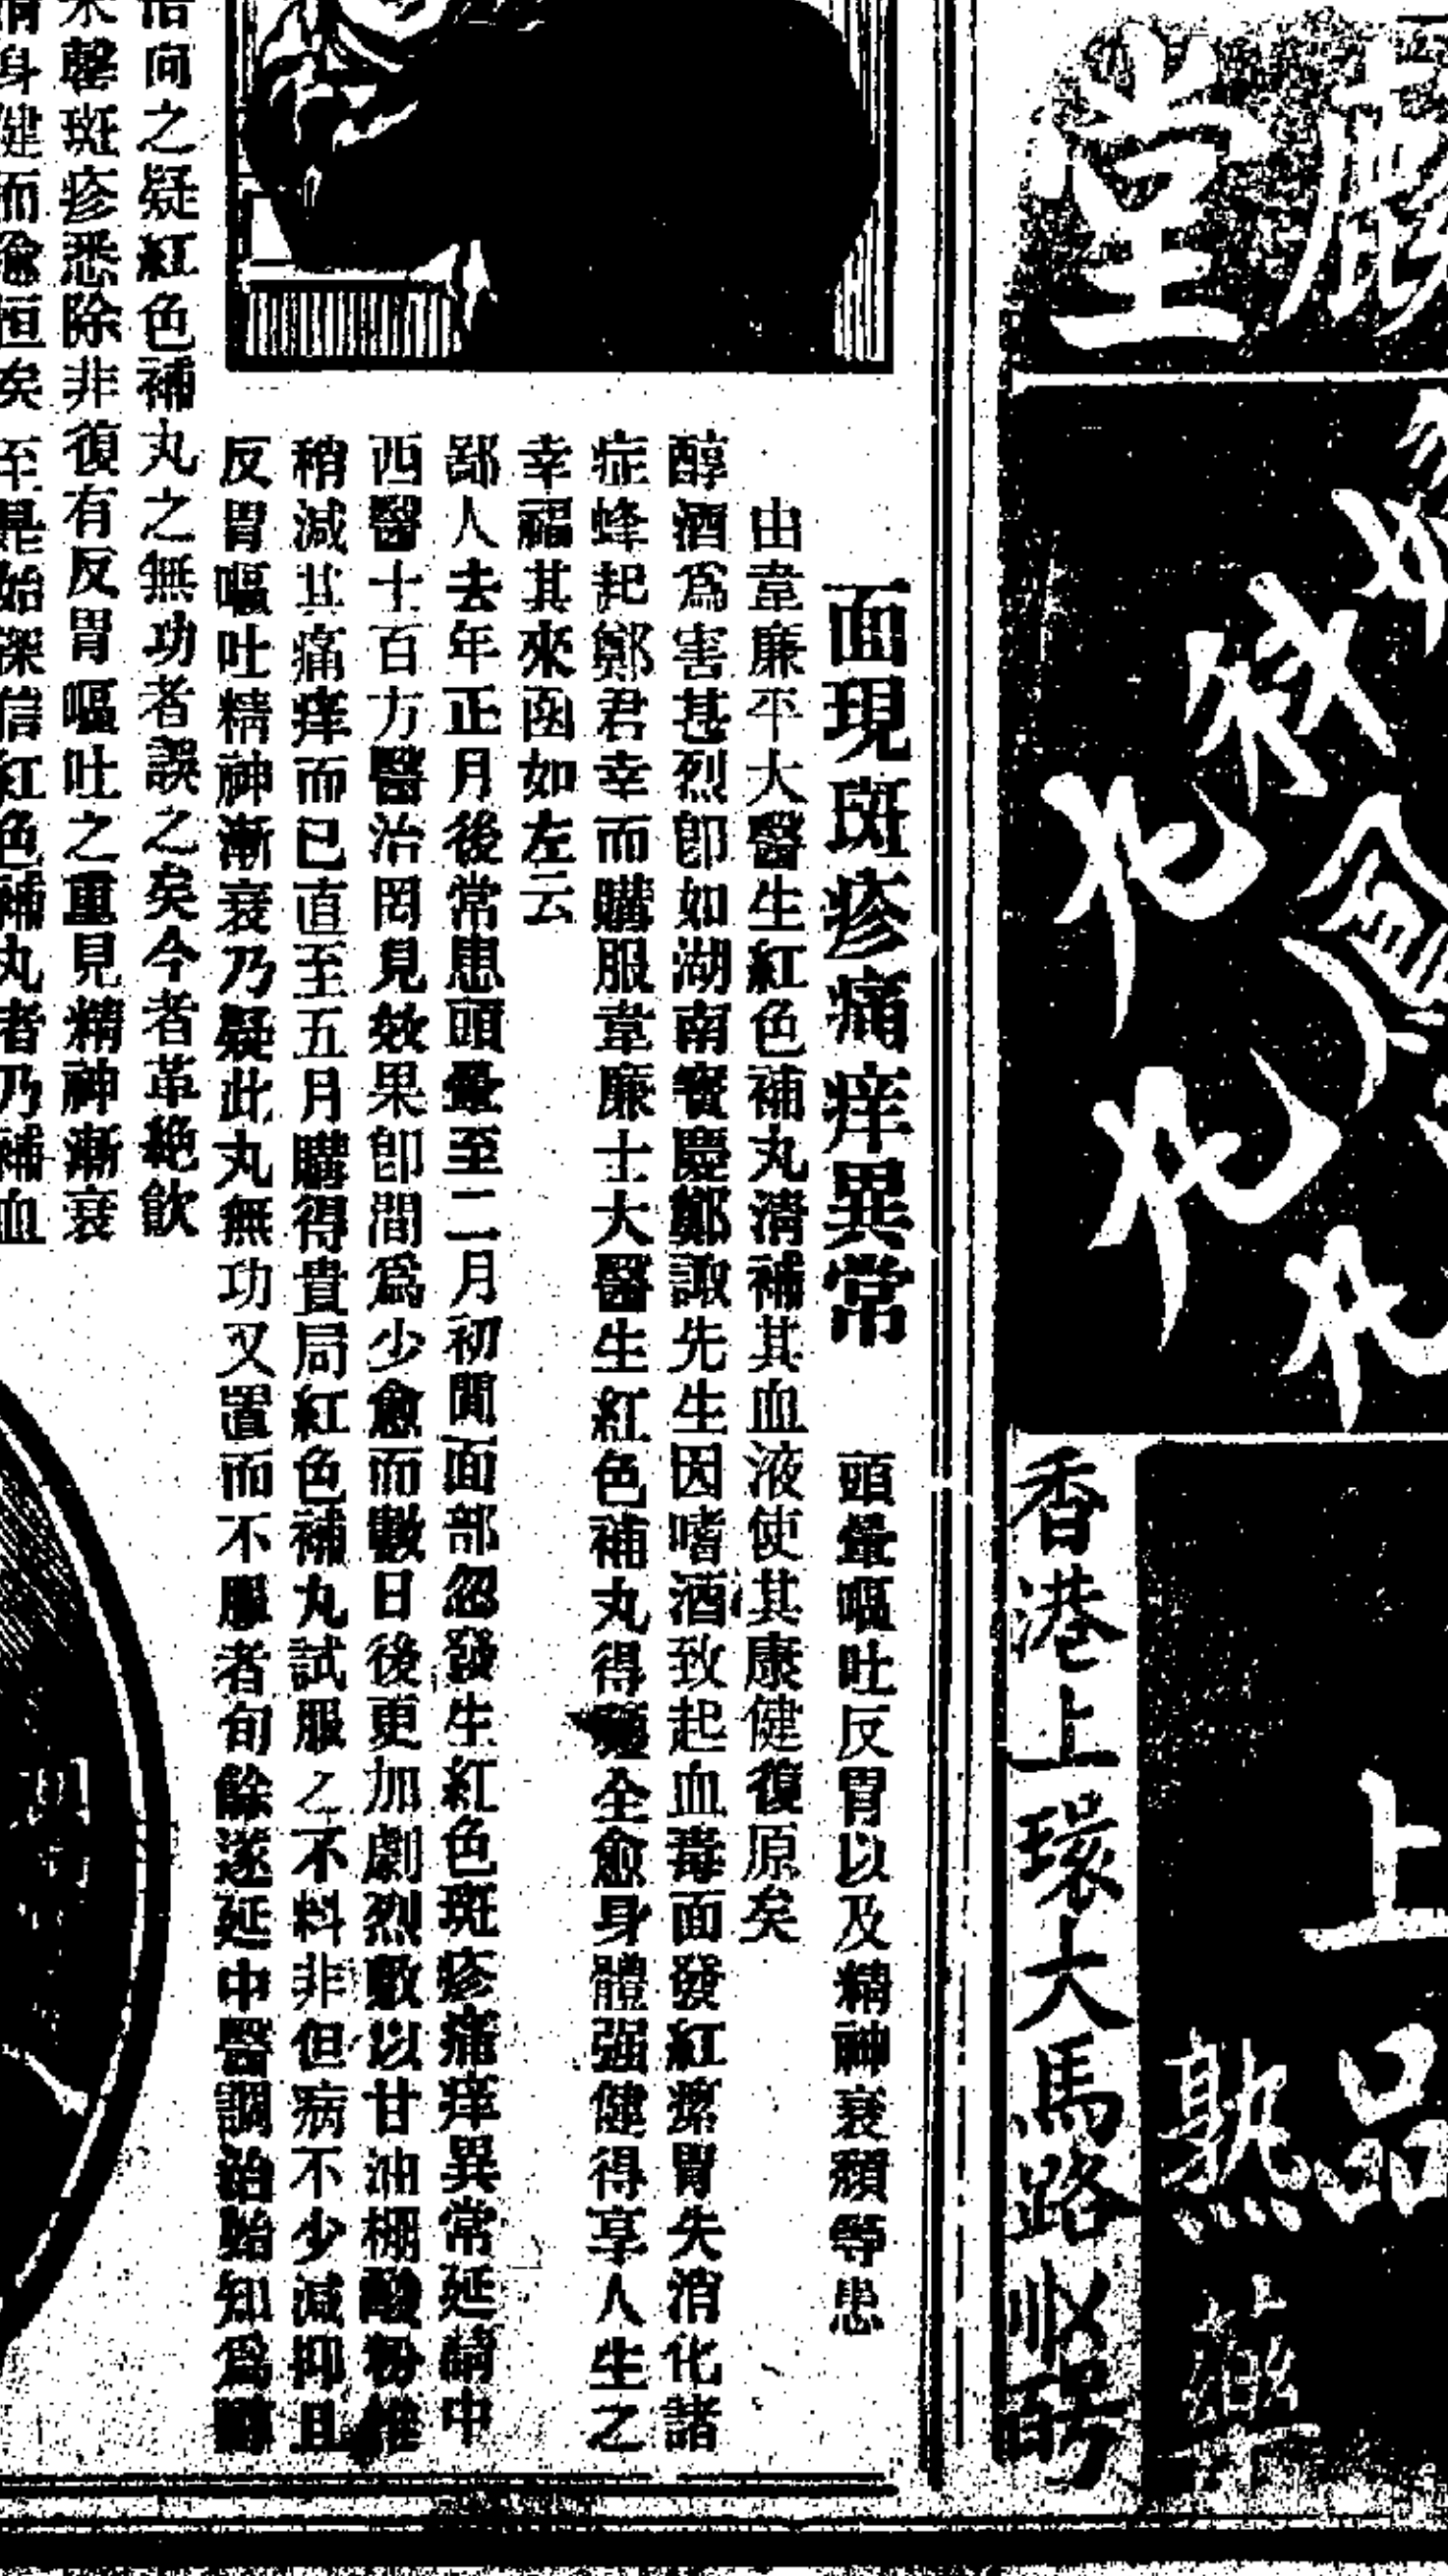 堂
上品
熟藥
香港上環大馬路
面現斑疹痛痒異常
頭暈嘔吐反胃以及精神衰頹等患
由韋廉平大醫生紅色補丸清補其血液使其康健復原矣
醇酒爲害甚烈卽如湖南寶慶鄭諏先生因嗜酒致起血毒面發紅瘰胃失消化諸
症蜂起鄭君幸而購服韋廉士大醫生紅色補丸得獲全愈身體强健得享人生之
幸福其來函如左云
鄙人去年正月後常患頭暈至二月初間面部忽發生紅色斑疹痛痒異常延請中
西醫士百方醫治罔見效果卽間爲少愈而數日後更加劇烈敷以甘油棚酸粉雖
稍減其痛痒而已直至五月購得貴局紅色補丸試服之不料非但病不少減抑且
反胃嘔吐精神漸衰乃疑此丸無功又置而不服者旬餘遂延中醫調治始知爲
向之疑紅色補丸之無功者誤之矣今者革絶飲
未罄斑疹悉除非復有反胃嘔吐之重見精神漸衰
身健而愉恒矣至是始深信紅色補丸者乃補血